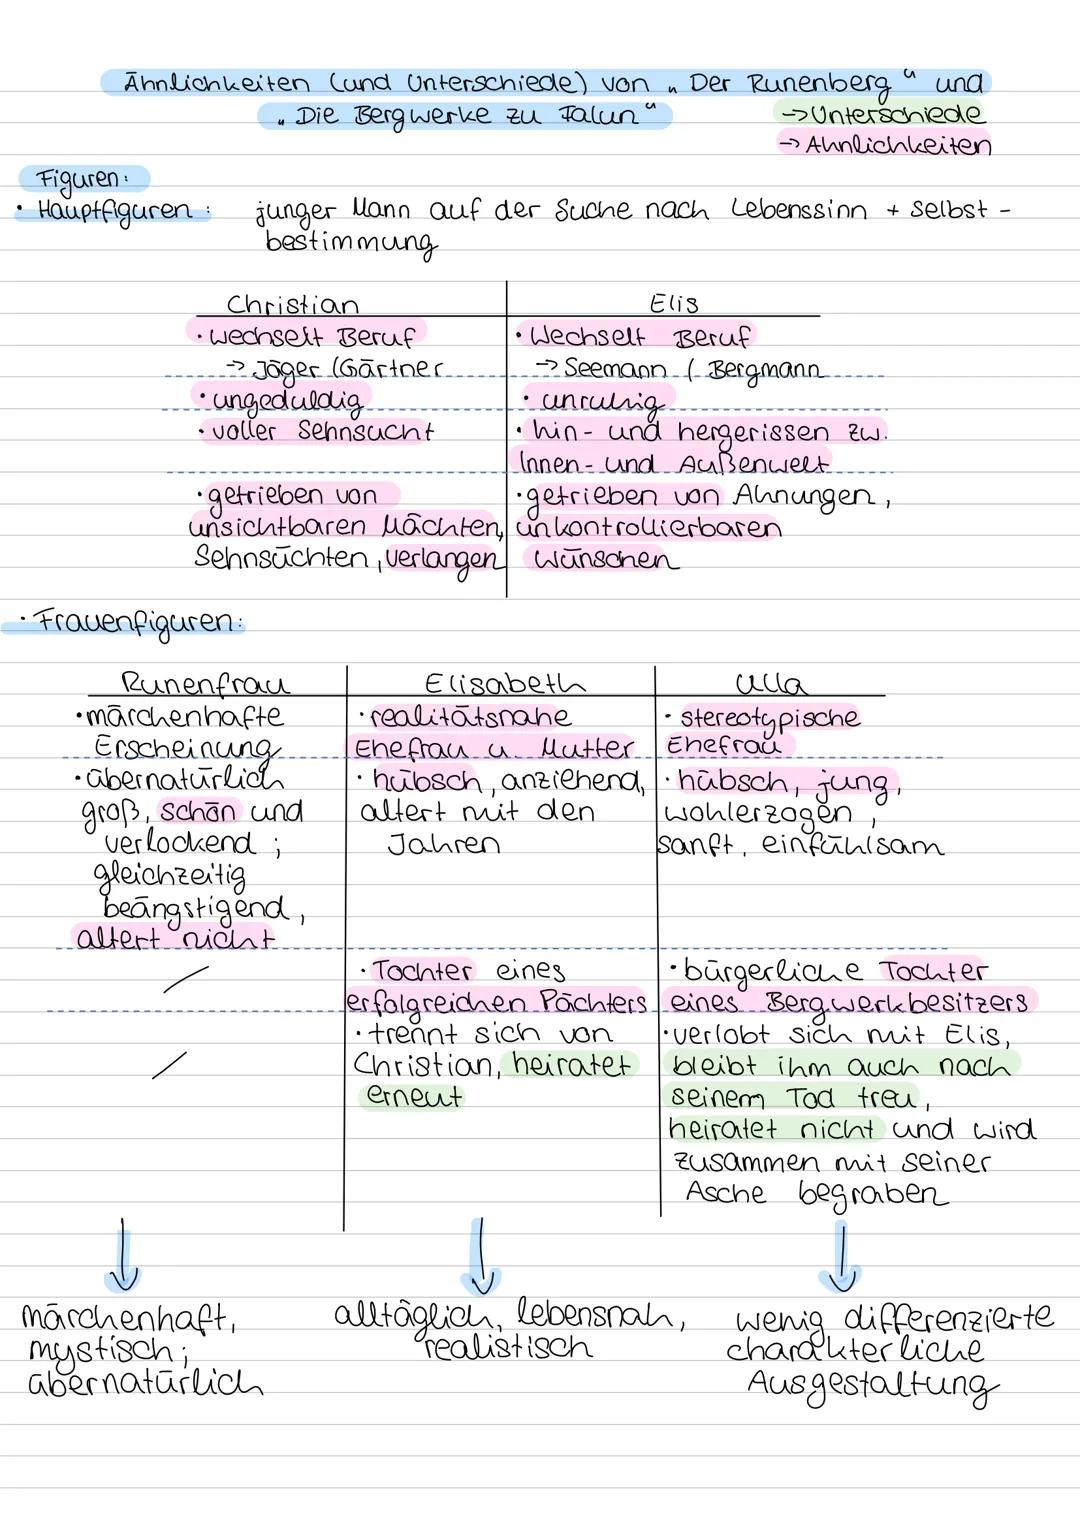 Ähnlichkeiten (und Unterschiede) von „Der Runenberg“ und
„Die Bergwerke zu Falun“
→ Unterschiede
→ Ähnlichkeiten
Figuren:
• Hauptfiguren: junger Mann auf der Suche nach Lebenssinn + Selbst-
bestimmung
Christian
• wechselt Beruf
→ Jäger / Gärtner
• ungeduldig
• voller Sehnsucht
• getrieben von
unsichtbaren Mächten,
Sehnsüchten, Verlangen
Elis
• Wechselt Beruf
→ Seemann / Bergmann
• unruhig
• hin- und hergerissen zw.
Innen- und Außenwelt
• getrieben von Ahnungen,
unkontrollierbaren
Wünschen
• Frauenfiguren:
Runenfrau
• märchenhafte
Erscheinung
• übernatürlich
groß, schön und
verlockend;
gleichzeitig
beängstigend,
altert nicht
/
/
Elisabeth
• realitätsnahe
Ehefrau u. Mutter
• hübsch, anziehend,
altert mit den
Jahren
• Tochter eines
erfolgreichen Pächters
• trennt sich von
Christian, heiratet
erneut
Ulla
• stereotypische
Ehefrau
• hübsch, jung,
wohlerzogen,
sanft, einfühlsam
• bürgerliche Tochter
eines Bergwerkbesitzers
• verlobt sich mit Elis,
bleibt ihm auch nach
seinem Tod treu,
heiratet nicht und wird
zusammen mit seiner
Asche begraben
märchenhaft,
mystisch;
übernatürlich
alltäglich, lebensnah,
realistisch
wenig differenzierte
charakterliche
Ausgestaltung